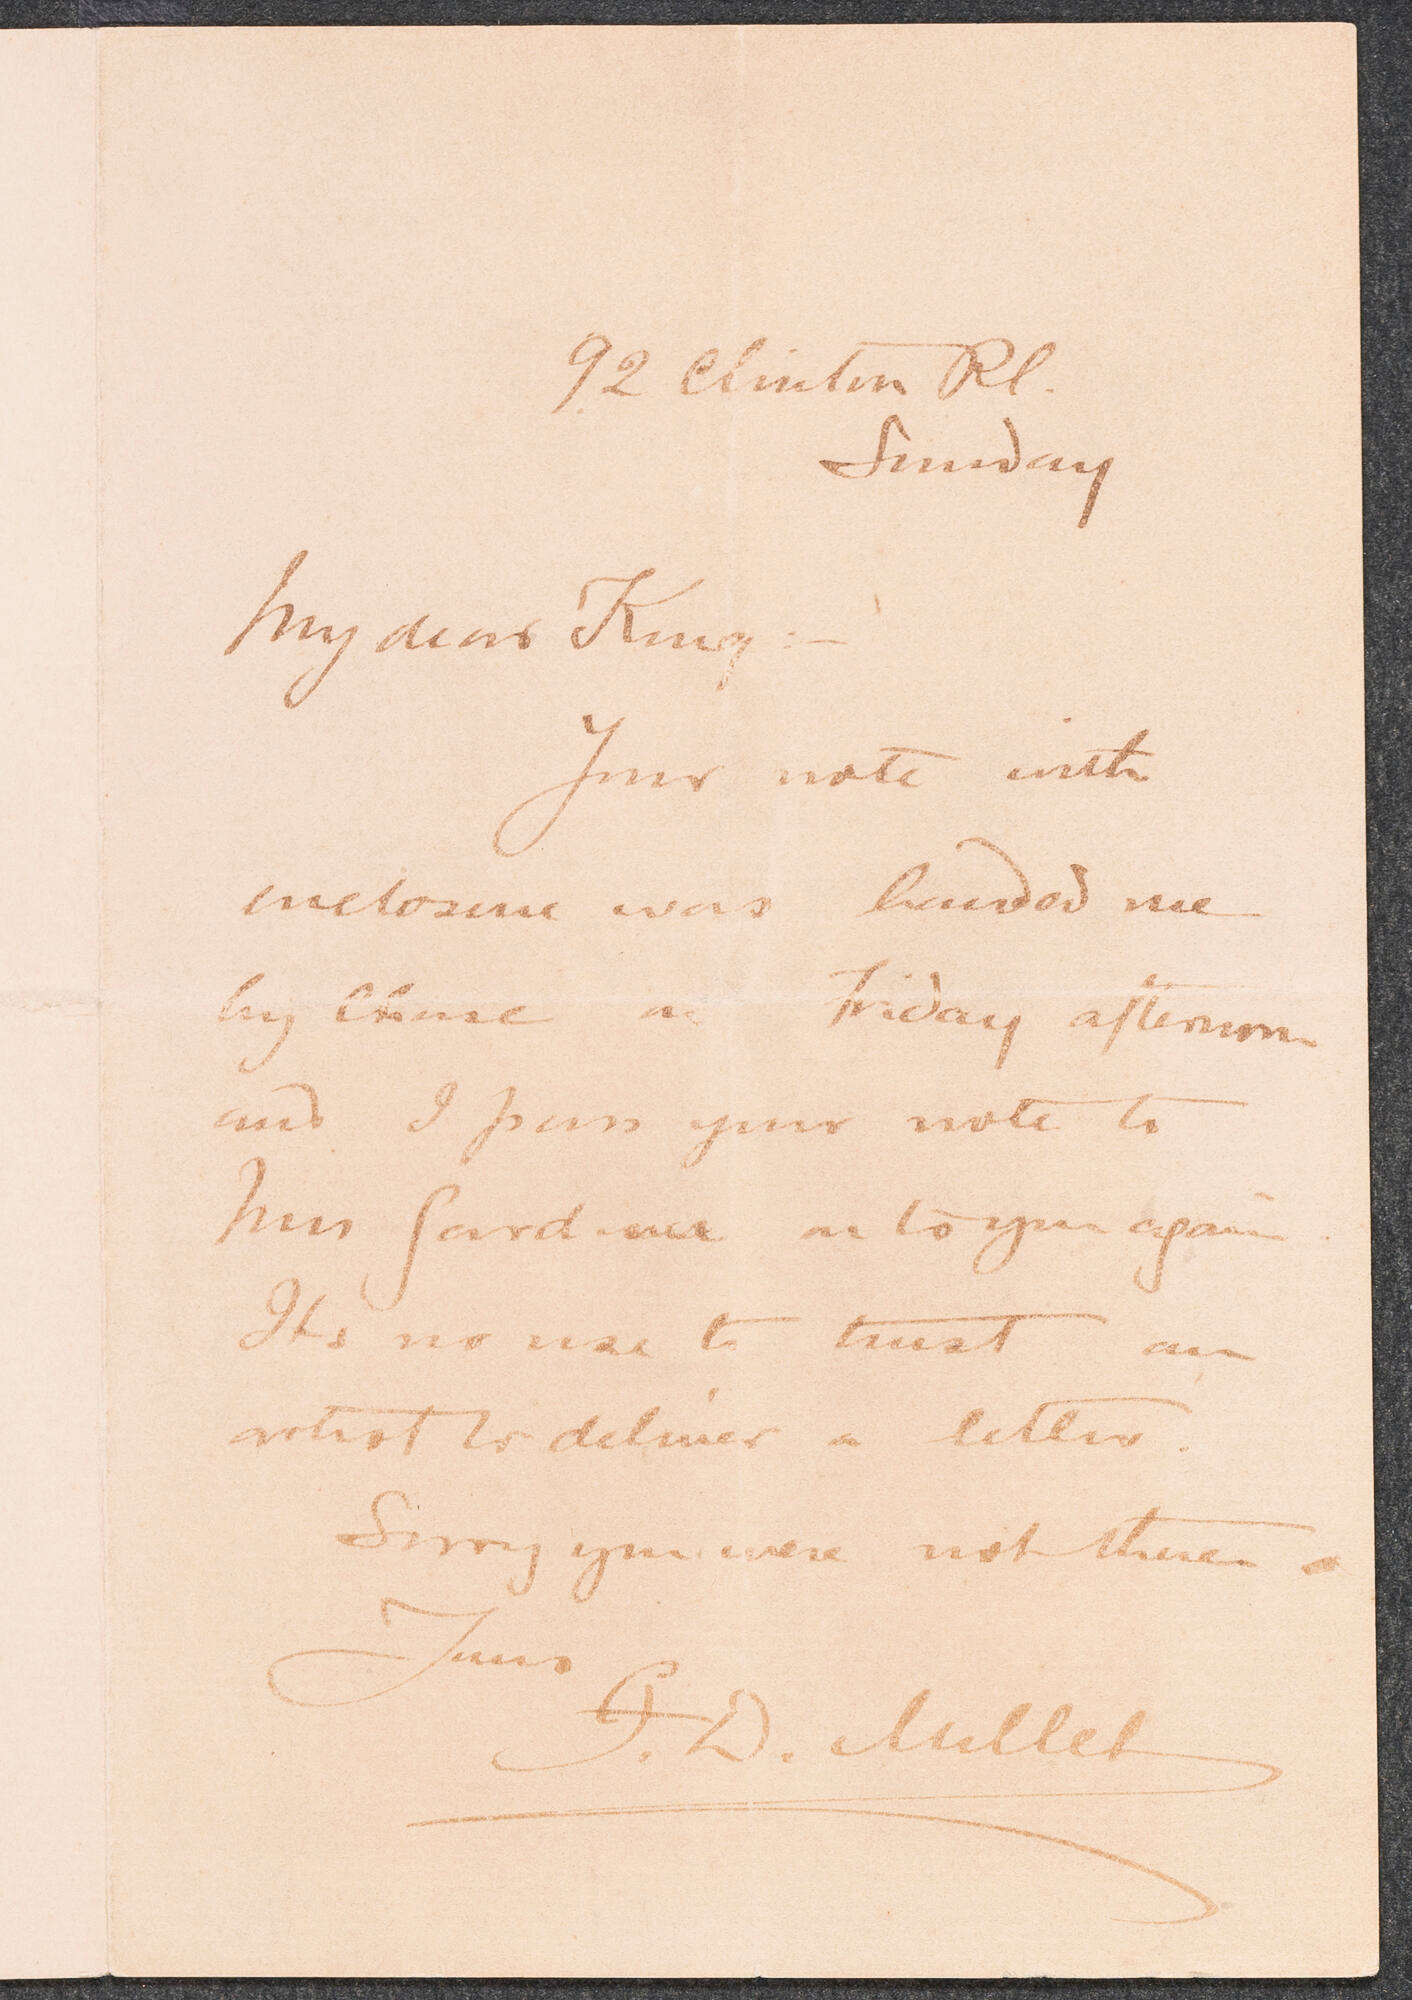 92 Clinton Pl.
Sunday
My dear King:—
Your note with
enclosure was handed me
by Chase on Friday afternoon
and I pass your note to
Mrs Gardiner or to you again.
Its no use to trust an
artist to deliver a letter.
Sorry you were not there.
Yours
F. D. Millet